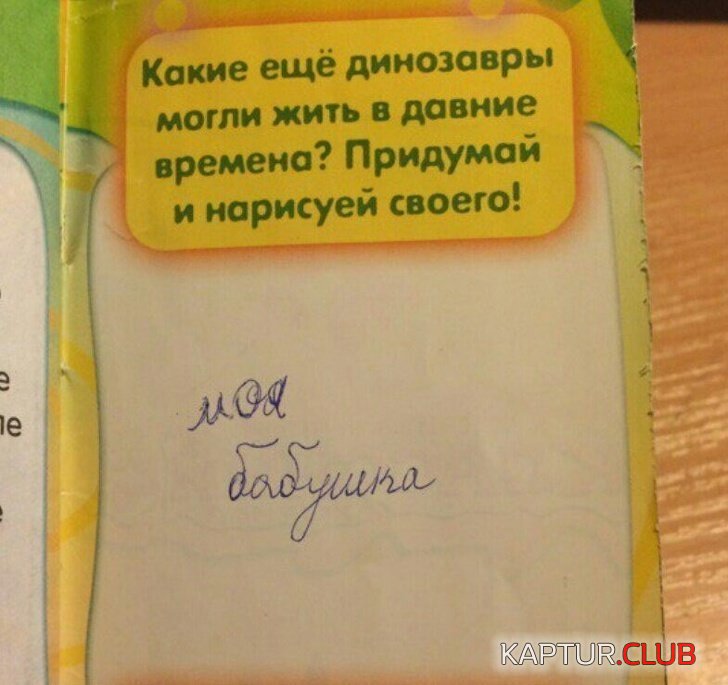 Какие ещё динозавры
могли жить в давние
времена? Придумай
и нарисуей своего!
моя
бабушка
е
е
KAPTUR.CLUB